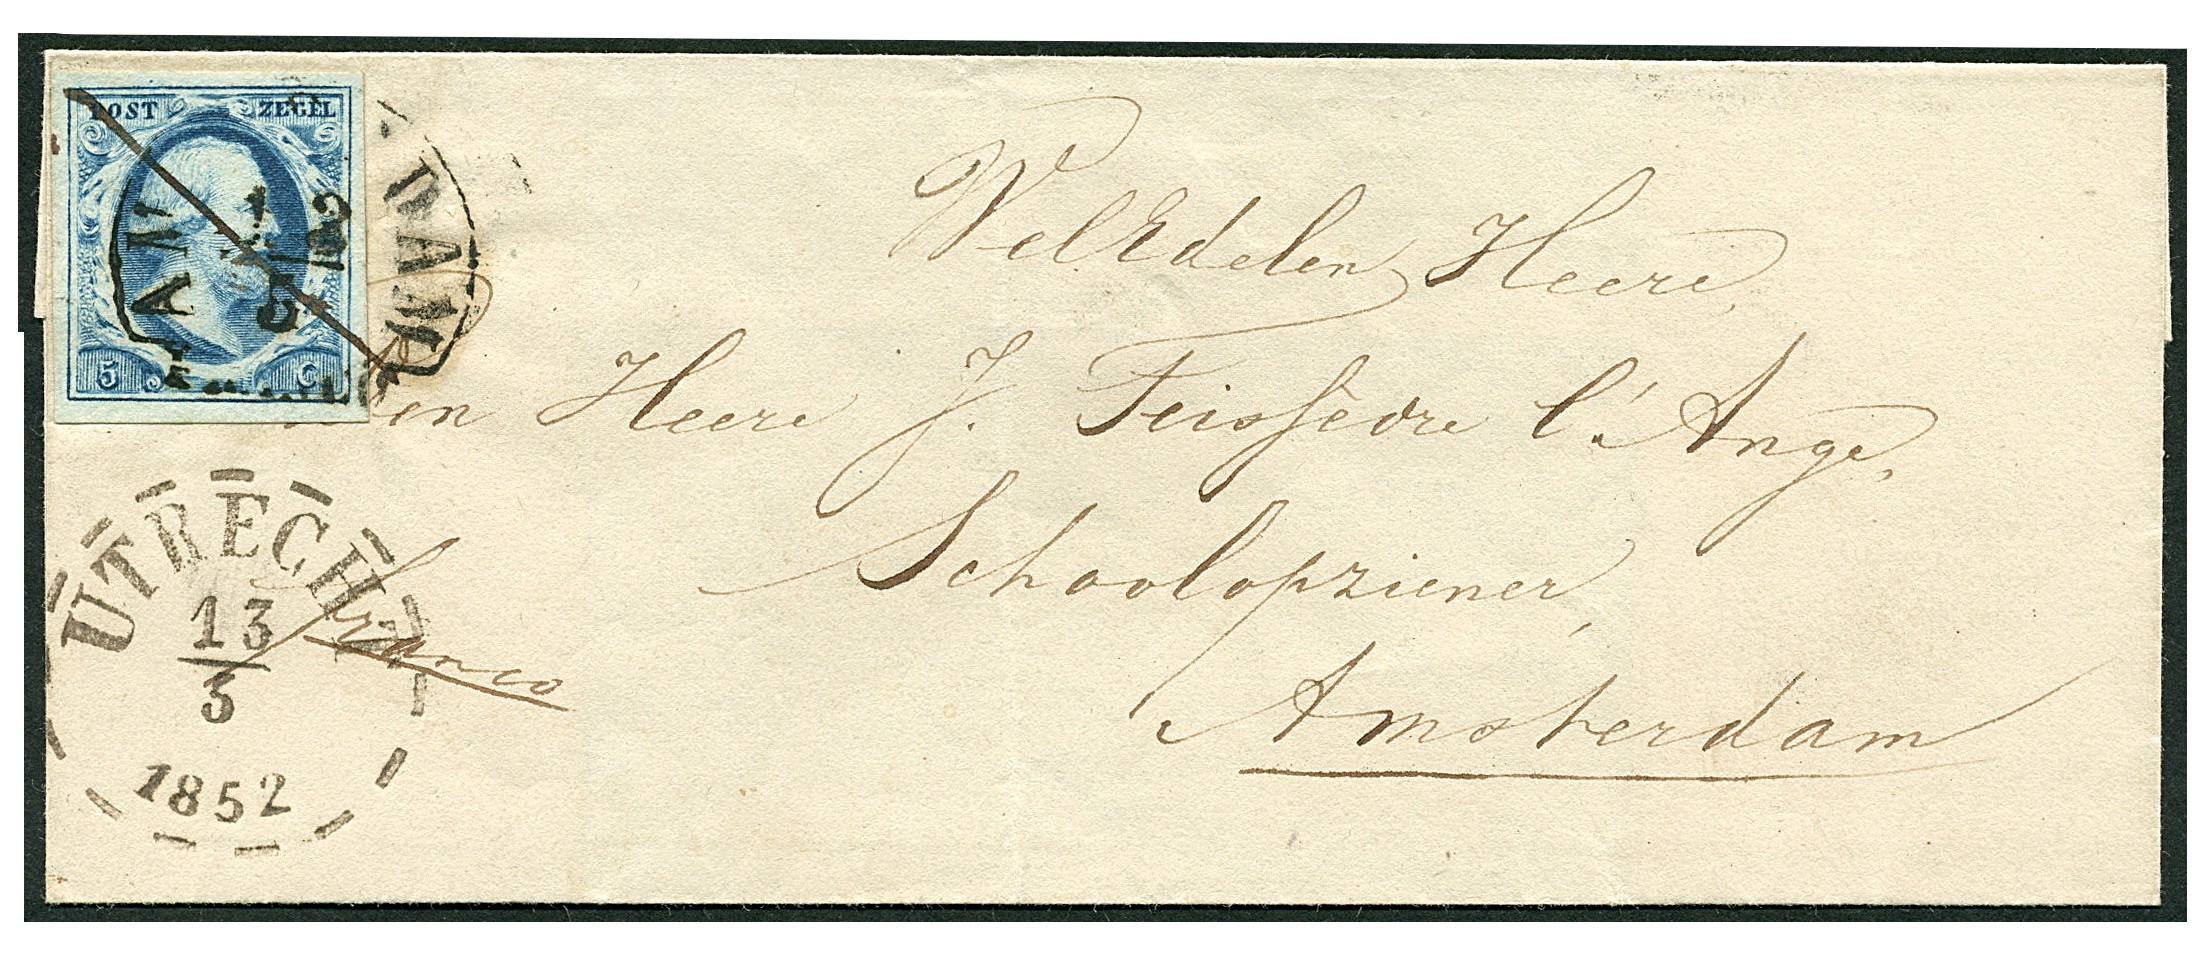 POST ZEGEL
5 C
DAM
AM
WelEdelen Heere,
den Heere J. Teissèdre l'Ange,
Schoolopziener,
Amsterdam
franco
UTRECHT
13
3
1852